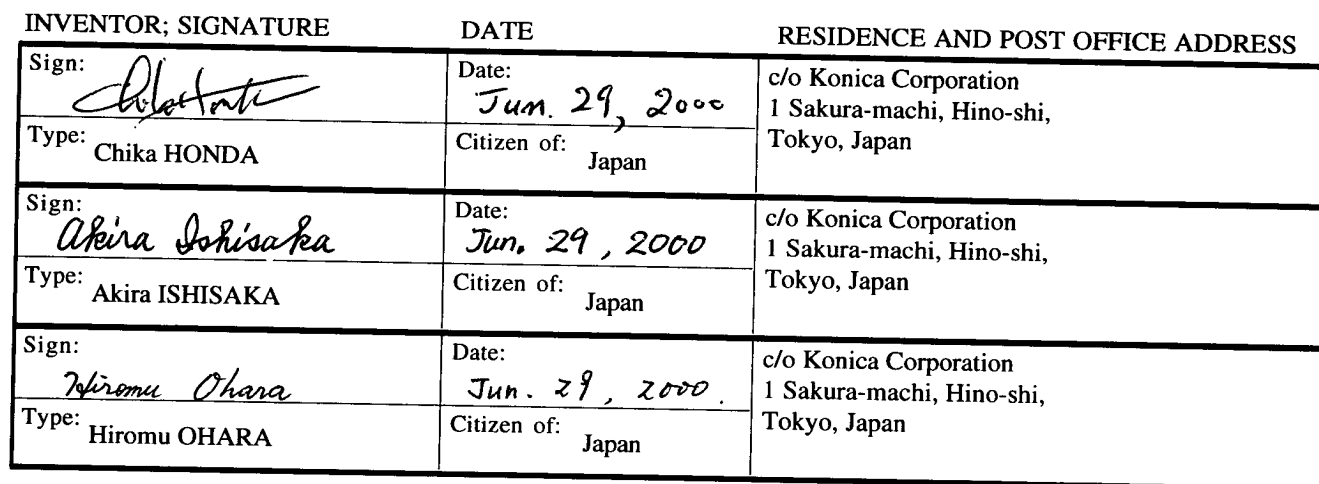 INVENTOR; SIGNATURE DATE RESIDENCE AND POST OFFICE ADDRESS
Sign: Date: Jun. 29, 2000 c/o Konica Corporation
1 Sakura-machi, Hino-shi,
Type: Chika HONDA Citizen of: Japan Tokyo, Japan
Sign: Akira Ishisaka Date: Jun. 29, 2000 c/o Konica Corporation
1 Sakura-machi, Hino-shi,
Type: Akira ISHISAKA Citizen of: Japan Tokyo, Japan
Sign: Hiromu Ohara Date: Jun. 29, 2000. c/o Konica Corporation
1 Sakura-machi, Hino-shi,
Type: Hiromu OHARA Citizen of: Japan Tokyo, Japan